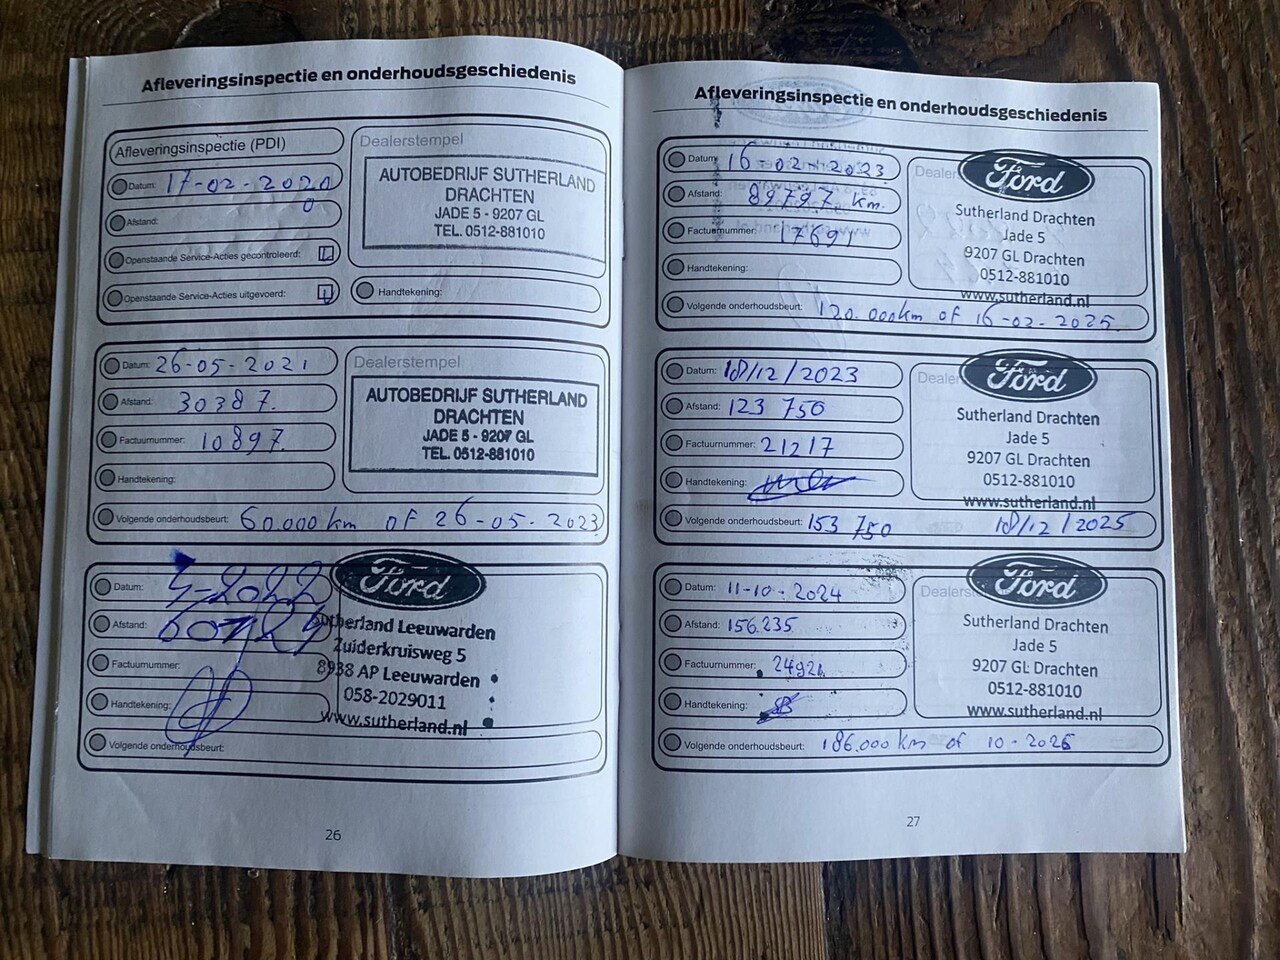 Afleveringsinspectie en onderhoudsgeschiedenis
Afleveringsinspectie (PDI)
Datum: 17-02-2020
Afstand: 0
Openstaande Service-Acties gecontroleerd:
Openstaande Service-Acties uitgevoerd:
Dealerstempel
AUTOBEDRIJF SUTHERLAND
DRACHTEN
JADE 5 - 9207 GL
TEL. 0512-881010
Handtekening:
Datum: 26-05-2021
Afstand: 30387.
Factuurnummer: 10897.
Handtekening:
Dealerstempel
AUTOBEDRIJF SUTHERLAND
DRACHTEN
JADE 5 - 9207 GL
TEL. 0512-881010
Volgende onderhoudsbeurt: 60.000 km of 26-05-2023
Datum:
Afstand:
Factuurnummer:
Handtekening:
Ford
Sutherland Leeuwarden
Zuiderkruisweg 5
8938 AP Leeuwarden
058-2029011
www.sutherland.nl
Volgende onderhoudsbeurt:
26
Afleveringsinspectie en onderhoudsgeschiedenis
Datum: 16-02-2023
Afstand: 89797 km.
Factuurnummer: 17691
Handtekening:
Dealer
Ford
Sutherland Drachten
Jade 5
9207 GL Drachten
0512-881010
www.sutherland.nl
Volgende onderhoudsbeurt: 120.000km of 16-02-2025.
Datum: 18/12/2023
Afstand: 123 750
Factuurnummer: 21217
Handtekening:
Dealer
Ford
Sutherland Drachten
Jade 5
9207 GL Drachten
0512-881010
www.sutherland.nl
Volgende onderhoudsbeurt: 153 750 18/12/2025
Datum: 11-10-2024
Afstand: 156.235
Factuurnummer:
Handtekening:
Dealerst
Ford
Sutherland Drachten
Jade 5
9207 GL Drachten
0512-881010
www.sutherland.nl
Volgende onderhoudsbeurt: 186.000 km of 10-2026
27